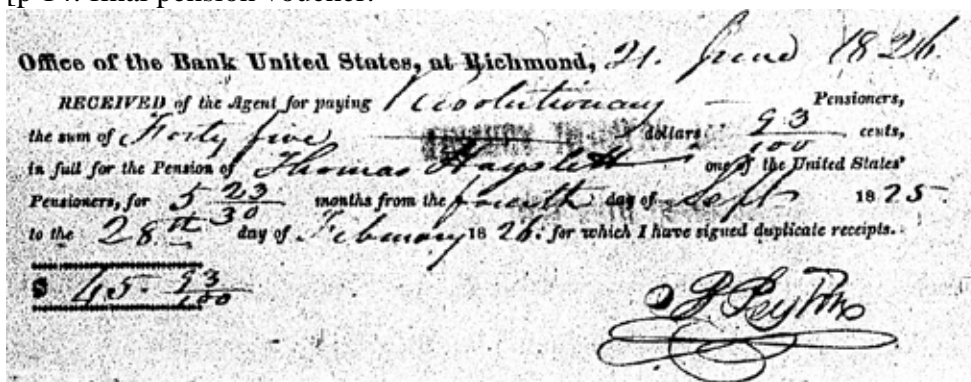 [p 14: final pension voucher:
Office of the Bank United States, at Richmond, 21. June 1826.
RECEIVED of the Agent for paying Revolutionary Pensioners,
the sum of Forty five dollars 93/100 cents,
in full for the Pension of Thomas Hayslett one of the United States'
Pensioners, for 5 23/30 months from the fourth day of Sept 1825.
to the 28th day of February 1826: for which I have signed duplicate receipts.
$ 45. 93/100
Peyton